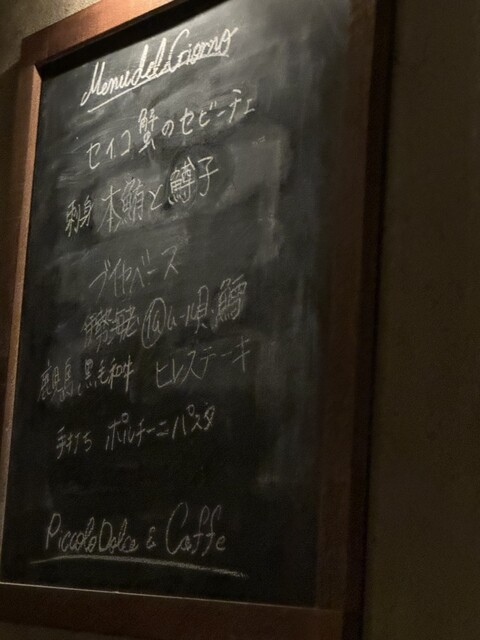 Menu del Giorno
セイコ蟹のセビーチェ
刺身 本鮪と鱒子
ブイヤベース
伊勢海老 ムール貝 鱈
鹿児島 黒毛和牛 ヒレステーキ
手打ち ポルチーニパスタ
Piccolo Dolce & Caffe